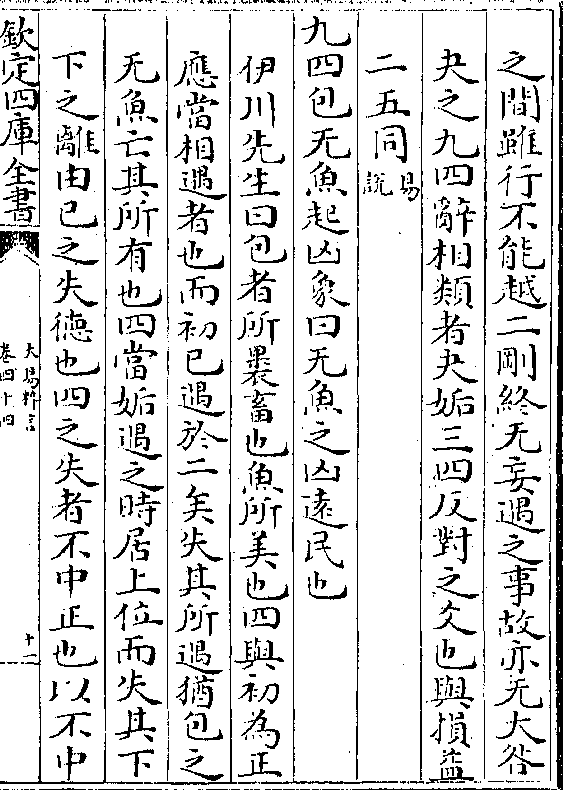 之間雖行不能越二剛終无妄遇之事故亦无大咎
夬之九四辭相類者夬姤三四反對之爻也與損益
二五同易說
九四包无魚起凶象曰无魚之凶遠民也
伊川先生曰包者所裹畜也魚所美也四與初為正
應當相遇者也而初已遇於二矣失其所遇猶包之
无魚亡其所有也四當姤遇之時居上位而失其下
下之離由已之失德也四之失者不中正也以不中
欽定四庫全書
大易粹言
卷四十四
十一